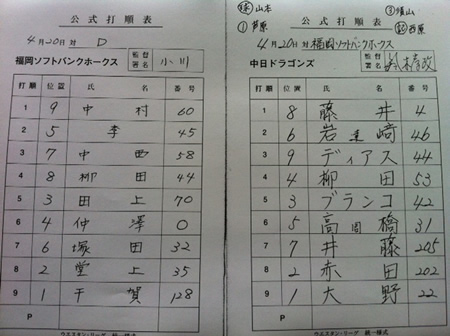 公式打順表
4月20日対 D
福岡ソフトバンクホークス 監督署名 小川
打順 位置 氏名 番号
1 9 中村 60
2 5 李 45
3 7 中西 58
4 8 柳田 44
5 3 田上 70
6 4 仲澤 0
7 6 塚田 32
8 2 堂上 35
9 1 千賀 128
P
ウエスタン・リーグ 統一様式
球 山本 ③ 横山
① 芦原 記 西原
公式打順表
4月20日対福岡ソフトバンクホークス
中日ドラゴンズ 監督署名
打順 位置 氏名 番号
1 8 藤井 4
2 6 岩崎達 46
3 9 ディアス 44
4 4 柳田 53
5 3 ブランコ 42
6 5 高橋周 31
7 7 井藤 205
8 2 赤田 202
9 1 大野 22
P
ウエスタン・リーグ 統一様式